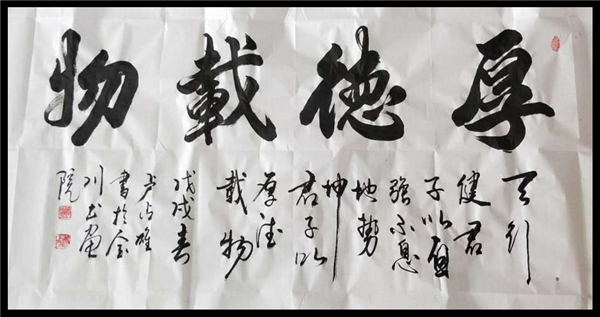 厚德載物
天行
健君
子以自
強不息
地勢
坤
君子以
厚德
載物
戊戌春
卢雄
書於金
川书画
院